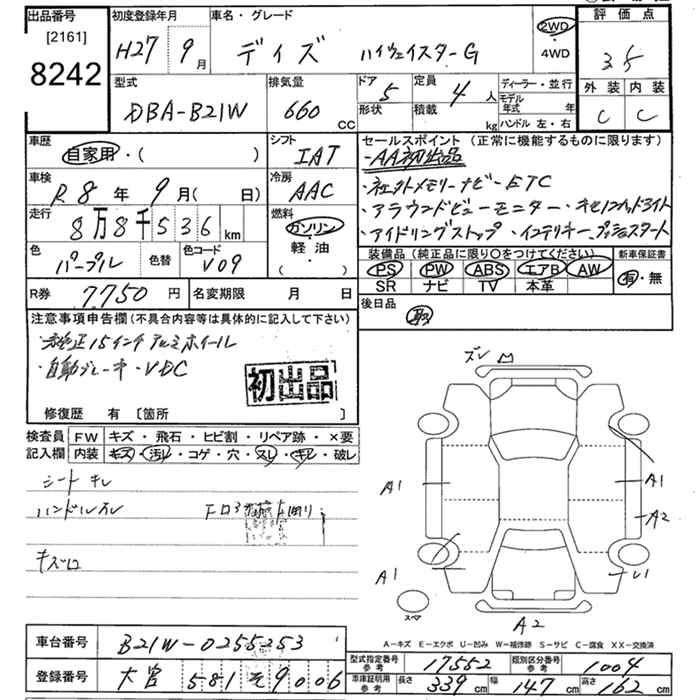 出品番号
[2161]
8242
初度登録年月
H27 9月
車名・グレード
デイズ ハイウェイスターG
2WD
・
4WD
評価点
3.5
外装 内装
C C
型式
DBA-B21W
排気量
660 CC
ドア 5
形状
定員 4 人
積載 kg
ディーラー・並行
モデル年式 年
ハンドル 左・右
車歴
自家用・( )
シフト
IAT
車検
R.8年 9月( 日)
冷房
AAC
走行
8万8千536km
燃料
ガソリン
軽油
( ・ )
色
パープル
色替
色コード
V09
R券 7750円
名変期限 月 日
セールスポイント (正常に機能するものに限ります)
・AA初出品
・社外メモリーナビ・ETC
・アラウンドビューモニター・
・アイドリングストップ・インテリキー、プッシュスタート
装備品(純正品に限り○をつけてください)
PS PW ABS エアB AW
SR ナビ TV 本革
新車保証書
有・無
後日品
取
注意事項申告欄(不具合内容等は具体的に記入して下さい)
・純正15インチアルミホイール
・自動ブレーキ・VDC
初出品
修復歴 有 [箇所 ]
検査員記入欄
FW キズ・飛石・ヒビ割・リペア跡・×要
内装 キズ・汚レ・コゲ・穴・スレ・キレ・破レ
シートキレ
ハンドルスレ
キズロ
ズレ
A1
A1
A2
A1
U1
A2
スペア
A-キズ E-エクボ U-凹み W-補修跡 S-サビ C-腐食 XX-交換済
車台番号 B21W-0255253
登録番号 大宮 581 そ 9006
型式指定番号参考 17552
類別区分番号参考 1004
車庫証明用参考 長さ 339cm 幅 147cm 高さ 162cm